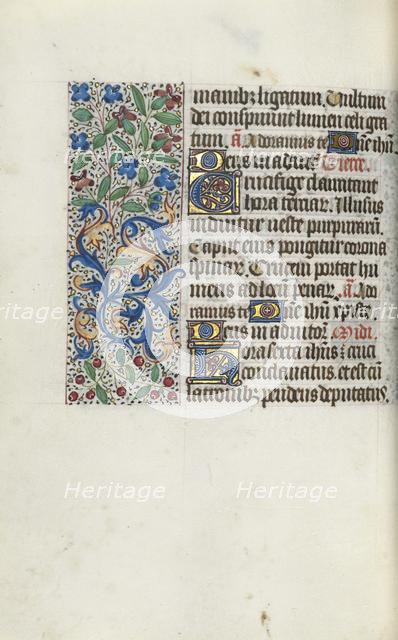 manibz ligatum. Vultum
dei conspuunt lumen celi gra
tum. A. Adoramus te xpe ihu.
Deus in adiut. Tierce.
Crucifige clamitant
hora terciar. Illusus
induitur veste purpuraru.
Caput eius pungitur corona
spinar. Crucem portat hu
meris ad locu penar. A. Ado
ramus te xpe ihu expler.
Deus in adiutor. Midi.
Hora sexta ihus est cruci
conclavatus. et est cu
latronibz pendens deputatus.
Heritage
Heritage
Heritage
Heritage
Heritage
Heritage